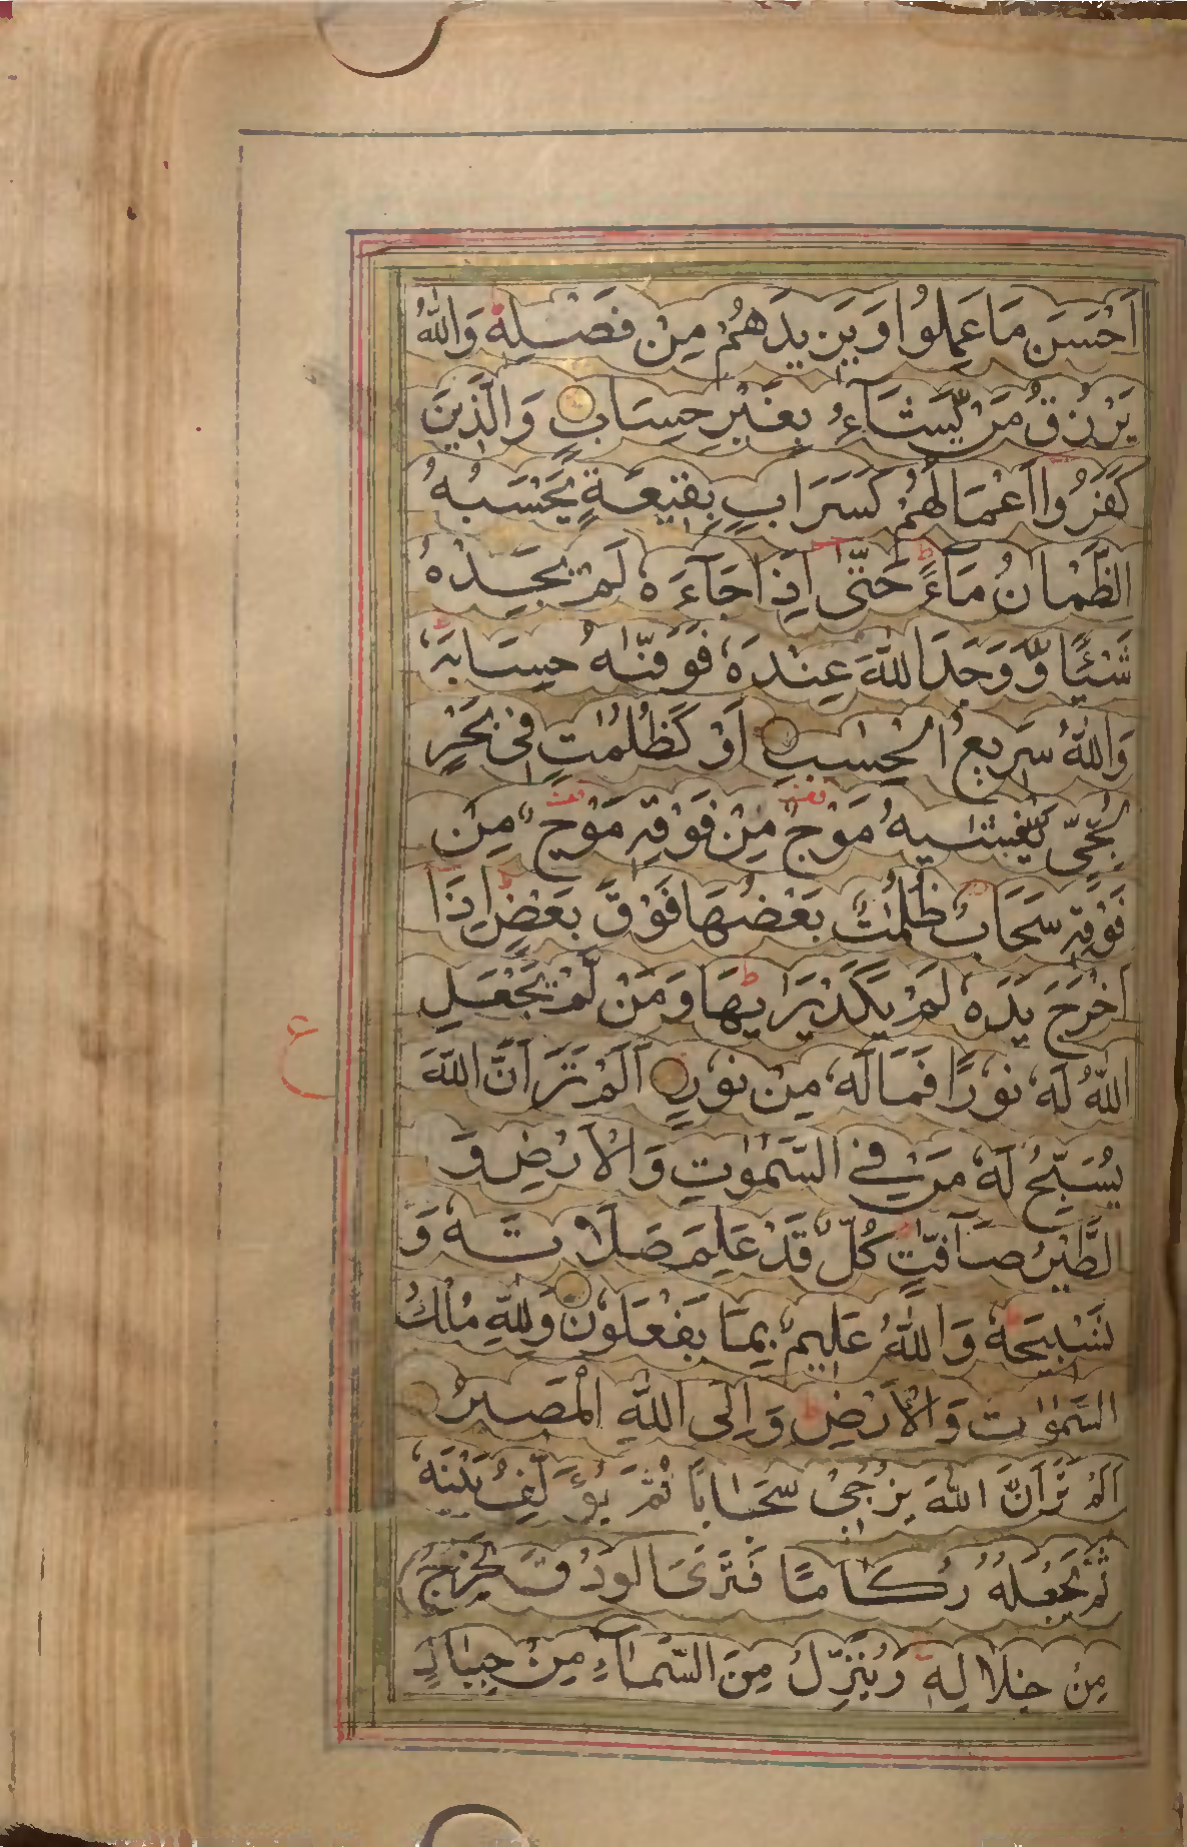 اَحْسَنَ مَا عَمِلُوا وَيَزِيدَهُمْ مِنْ فَضْلِهٖ وَاللّٰهُ
يَرْزُقُ مَنْ يَّشَآءُ بِغَيْرِ حِسَابٍ وَالَّذِينَ
كَفَرُوا اَعْمَالُهُمْ كَسَرَابٍ بِقِيعَةٍ يَحْسَبُهُ
الظَّمْاٰنُ مَآءً حَتّٰى اِذَا جَآءَهٗ لَمْ يَجِدْهُ
شَيْئًا وَّوَجَدَ اللّٰهَ عِنْدَهٗ فَوَفّٰىهُ حِسَابَهٗ
وَاللّٰهُ سَرِيعُ الْحِسَابِ اَوْ كَظُلُمٰتٍ فِى بَحْرٍ
لُّجِّىٍّ يَّغْشٰيهُ مَوْجٌ مِنْ فَوْقِهٖ مَوْجٌ مِنْ
فَوْقِهٖ سَحَابٌ ظُلُمٰتٌ بَعْضُهَا فَوْقَ بَعْضٍ اِذَا
اَخْرَجَ يَدَهٗ لَمْ يَكَدْ يَرٰيهَا وَمَنْ لَّمْ يَجْعَلِ
اللّٰهُ لَهٗ نُوْرًا فَمَا لَهٗ مِنْ نُوْرٍ اَلَمْ تَرَ اَنَّ اللّٰهَ
يُسَبِّحُ لَهٗ مَنْ فِي السَّمٰوٰتِ وَالْاَرْضِ وَ
لطَّيْرُ صَآفّٰتٍ كُلٌّ قَدْ عَلِمَ صَلَاتَهٗ وَ
تَسْبِيحَهٗ وَاللّٰهُ عَلِيمٌ بِمَا يَفْعَلُوْنَ وَلِلّٰهِ مُلْكُ
السَّمٰوٰت وَالْاَرْضِ وَاِلَى اللّٰهِ الْمَصِيْرُ
اَلَمْ تَرَ اَنَّ اللّٰهَ يُزْجِىْ سَحَابًا ثُمَّ يُؤَلِّفُ بَيْنَهٗ
ثُمَّ يَجْعَلُهٗ رُكَامًا فَتَرَى الْوَدْقَ يَخْرُجُ
مِنْ خِلَالِهٖ وَيُنَزِّلُ مِنَ السَّمَآءِ مِنْ جِبَالٍ
ع